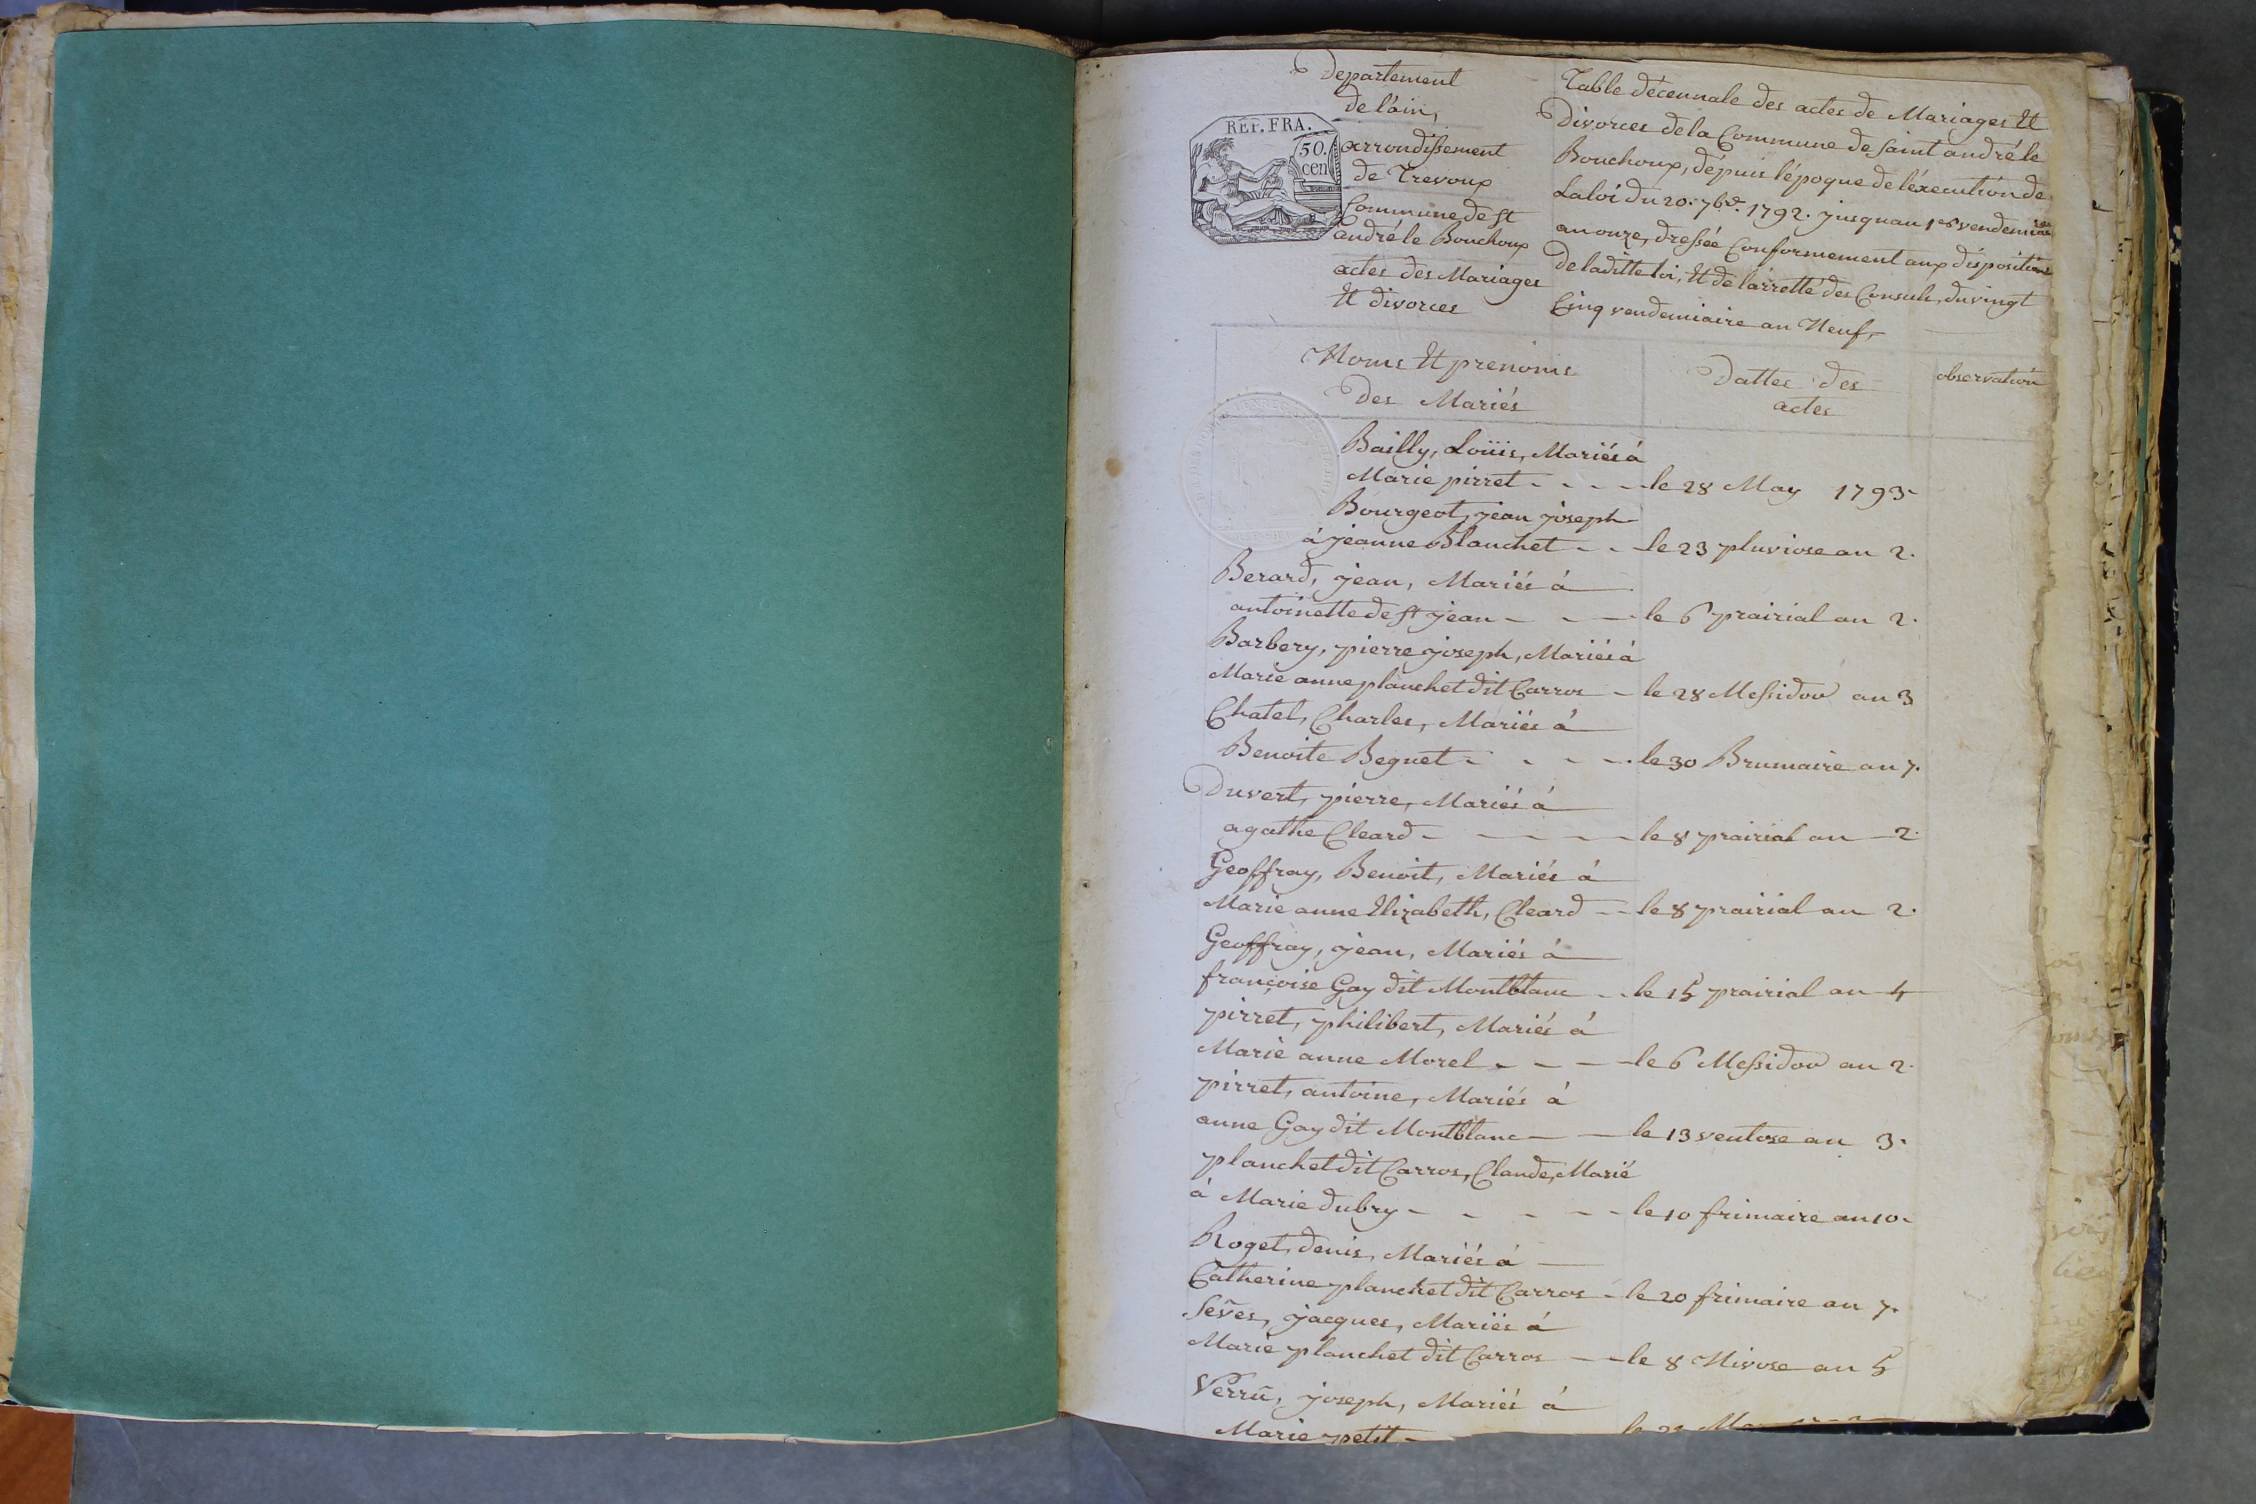 Departement
de l'ain,
arrondissement
de Trevoux
Commune de st
andré le Bouchoux
actes des Mariages
Et divorces
REP. FRA.
50.
cen
Table décennale des actes de Mariages Et
Divorces de la Commune de saint andré le
Bouchoux, dépuis l'époque de l'éxecution de
La loi du 20. 7bre. 1792. jusquau 1er vendemiaire
an onze, dressée Conformement aux dispositions
de laditte loi, Et de l'arretté des Consuls, du vingt
Cinq vendemiaire an Neuf,
Noms Et prenoms
des Mariés
Dattes des
actes
observation
Bailly, Loüis, Mariés á
Marie pirret - - - - le 28 May 1793-
Bourgeot, jean joseph
á jeanne Blanchet - - le 23 pluviose an 2.
Berard, jean, Mariés á
antoinette de st jean - - - le 6 prairial an 2.
Barbery, pierre joseph, Mariés á
Marie anne planchet dit Carros - le 28 Messidor an 3
Chatel, Charles, Mariés á
Benoite Beguet - - - - le 30 Brumaire an 7.
Duvert, pierre, Mariés á
agathe Cleard - - - - - le 8 prairial an 2.
Geoffray, Benoit, Mariés á
Marie anne Elizabeth, Cleard - - le 8 prairial an 2.
Geoffray, jean, Mariés á
françoise Gay dit Montblanc - - le 15 prairial an 4
pirret, philibert, Mariés á
Marie anne Morel - - - le 6 Messidor an 2.
pirret, antoine, Mariés á
anne Gay dit Montblanc - - le 13 ventose an 3.
planchet dit Carros, Claude, Marié
á Marie dubry - - - - - le 10 frimaire an 10-
Roget, denis, Mariés á
Catherine planchet dit Carros - le 20 frimaire an 7.
Seves, jacques, Mariés á
Marie planchet dit Carros - - le 8 Nivose an 5
Verrũ, joseph, Mariés á
Marie petit -